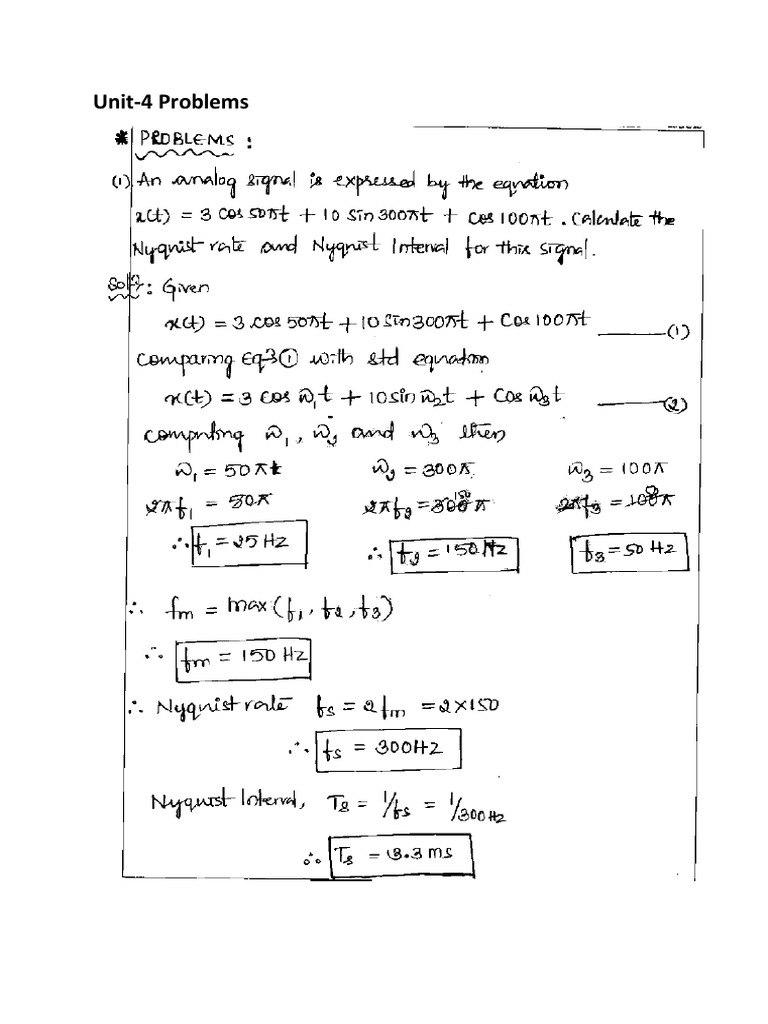 Unit-4 Problems
* PROBLEMS :
(1) An analog signal is expressed by the equation
x(t) = 3 cos 50πt + 10 sin 300πt + cos 100πt . Calculate the
Nyquist rate and Nyquist Interval for this signal.
Sol : Given
x(t) = 3 cos 50πt + 10 sin 300πt + Cos 100πt (1)
comparing Eq ① with std equation
x(t) = 3 cos ω₁t + 10 sin ω₂t + Cos ω₃t (2)
computing ω₁, ω₂ and ω₃ then
ω₁ = 50πt ω₂ = 300π ω₃ = 100π
2πf₁ = 50π 2πf₂ = 300π 150 2πf₃ = 100π 50
∴ f₁ = 25 Hz ∴ f₂ = 150 Hz f₃ = 50 Hz
∴ fm = max (f₁, f₂, f₃)
∴ fm = 150 Hz
∴ Nyquist rate fs = 2fm = 2 × 150
∴ fs = 300Hz
Nyquist Interval, Ts = 1/fs = 1/300Hz
∴ Ts = 3.3 ms